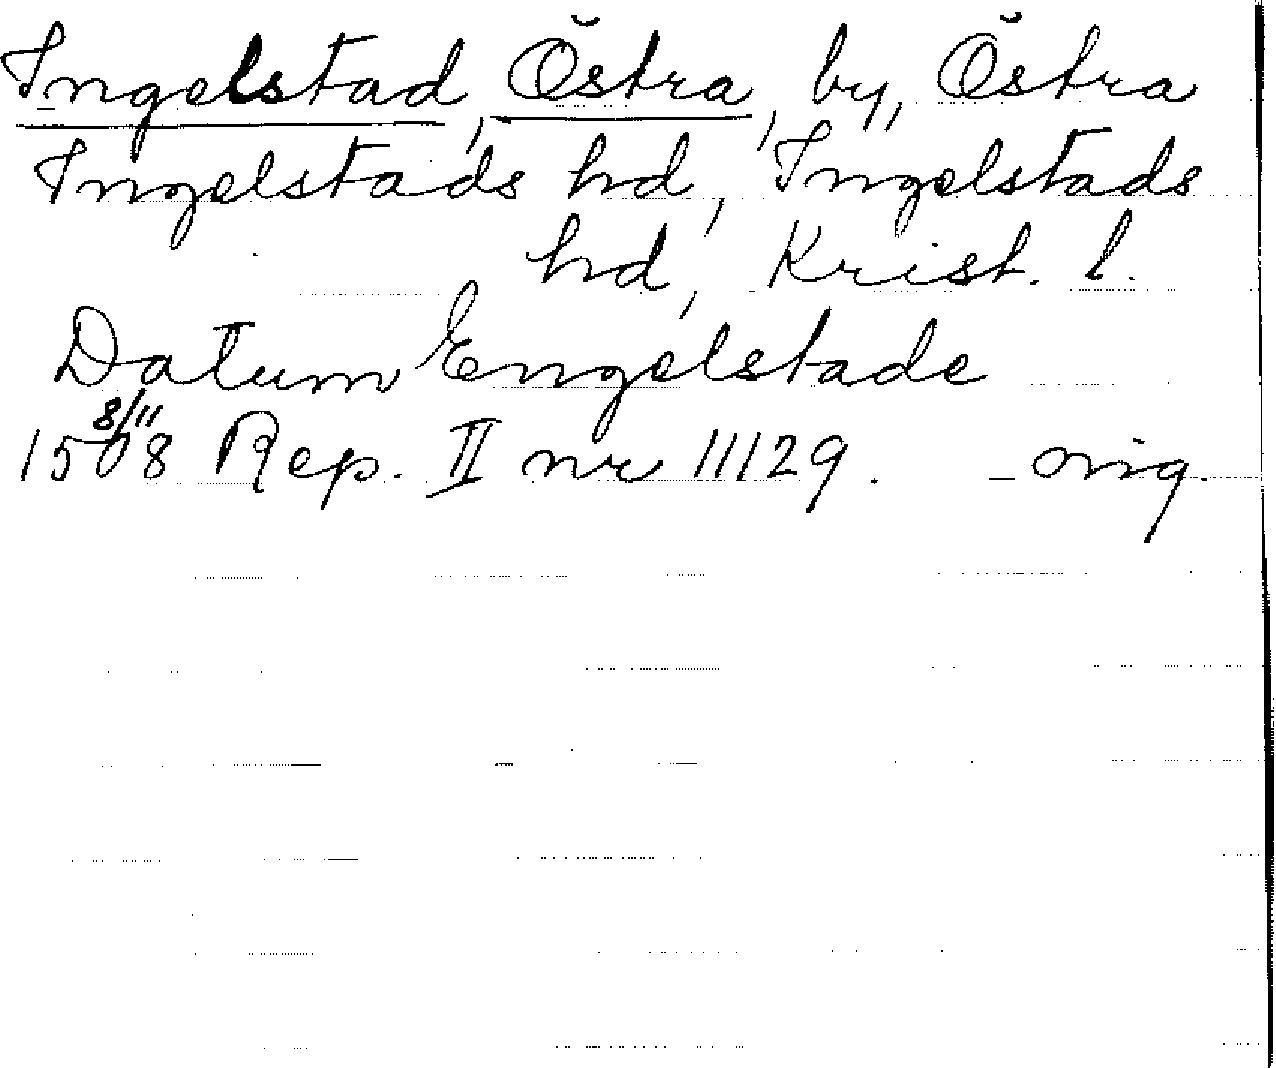 Ingelstad, Östra, by, Östra
Ingelstads hd, Ingelstads
hd, Krist. l.
Datum Engelstade
1508 8/11 Rep. II nr 11129. orig.